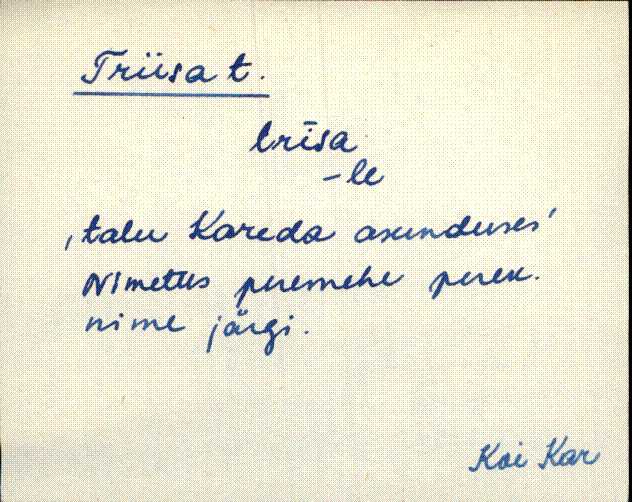 Triisa t.
trīsa
-le
'talu Kareda asunduses'
Nimetus peremehe perek.
nime järgi.
Koi Kar